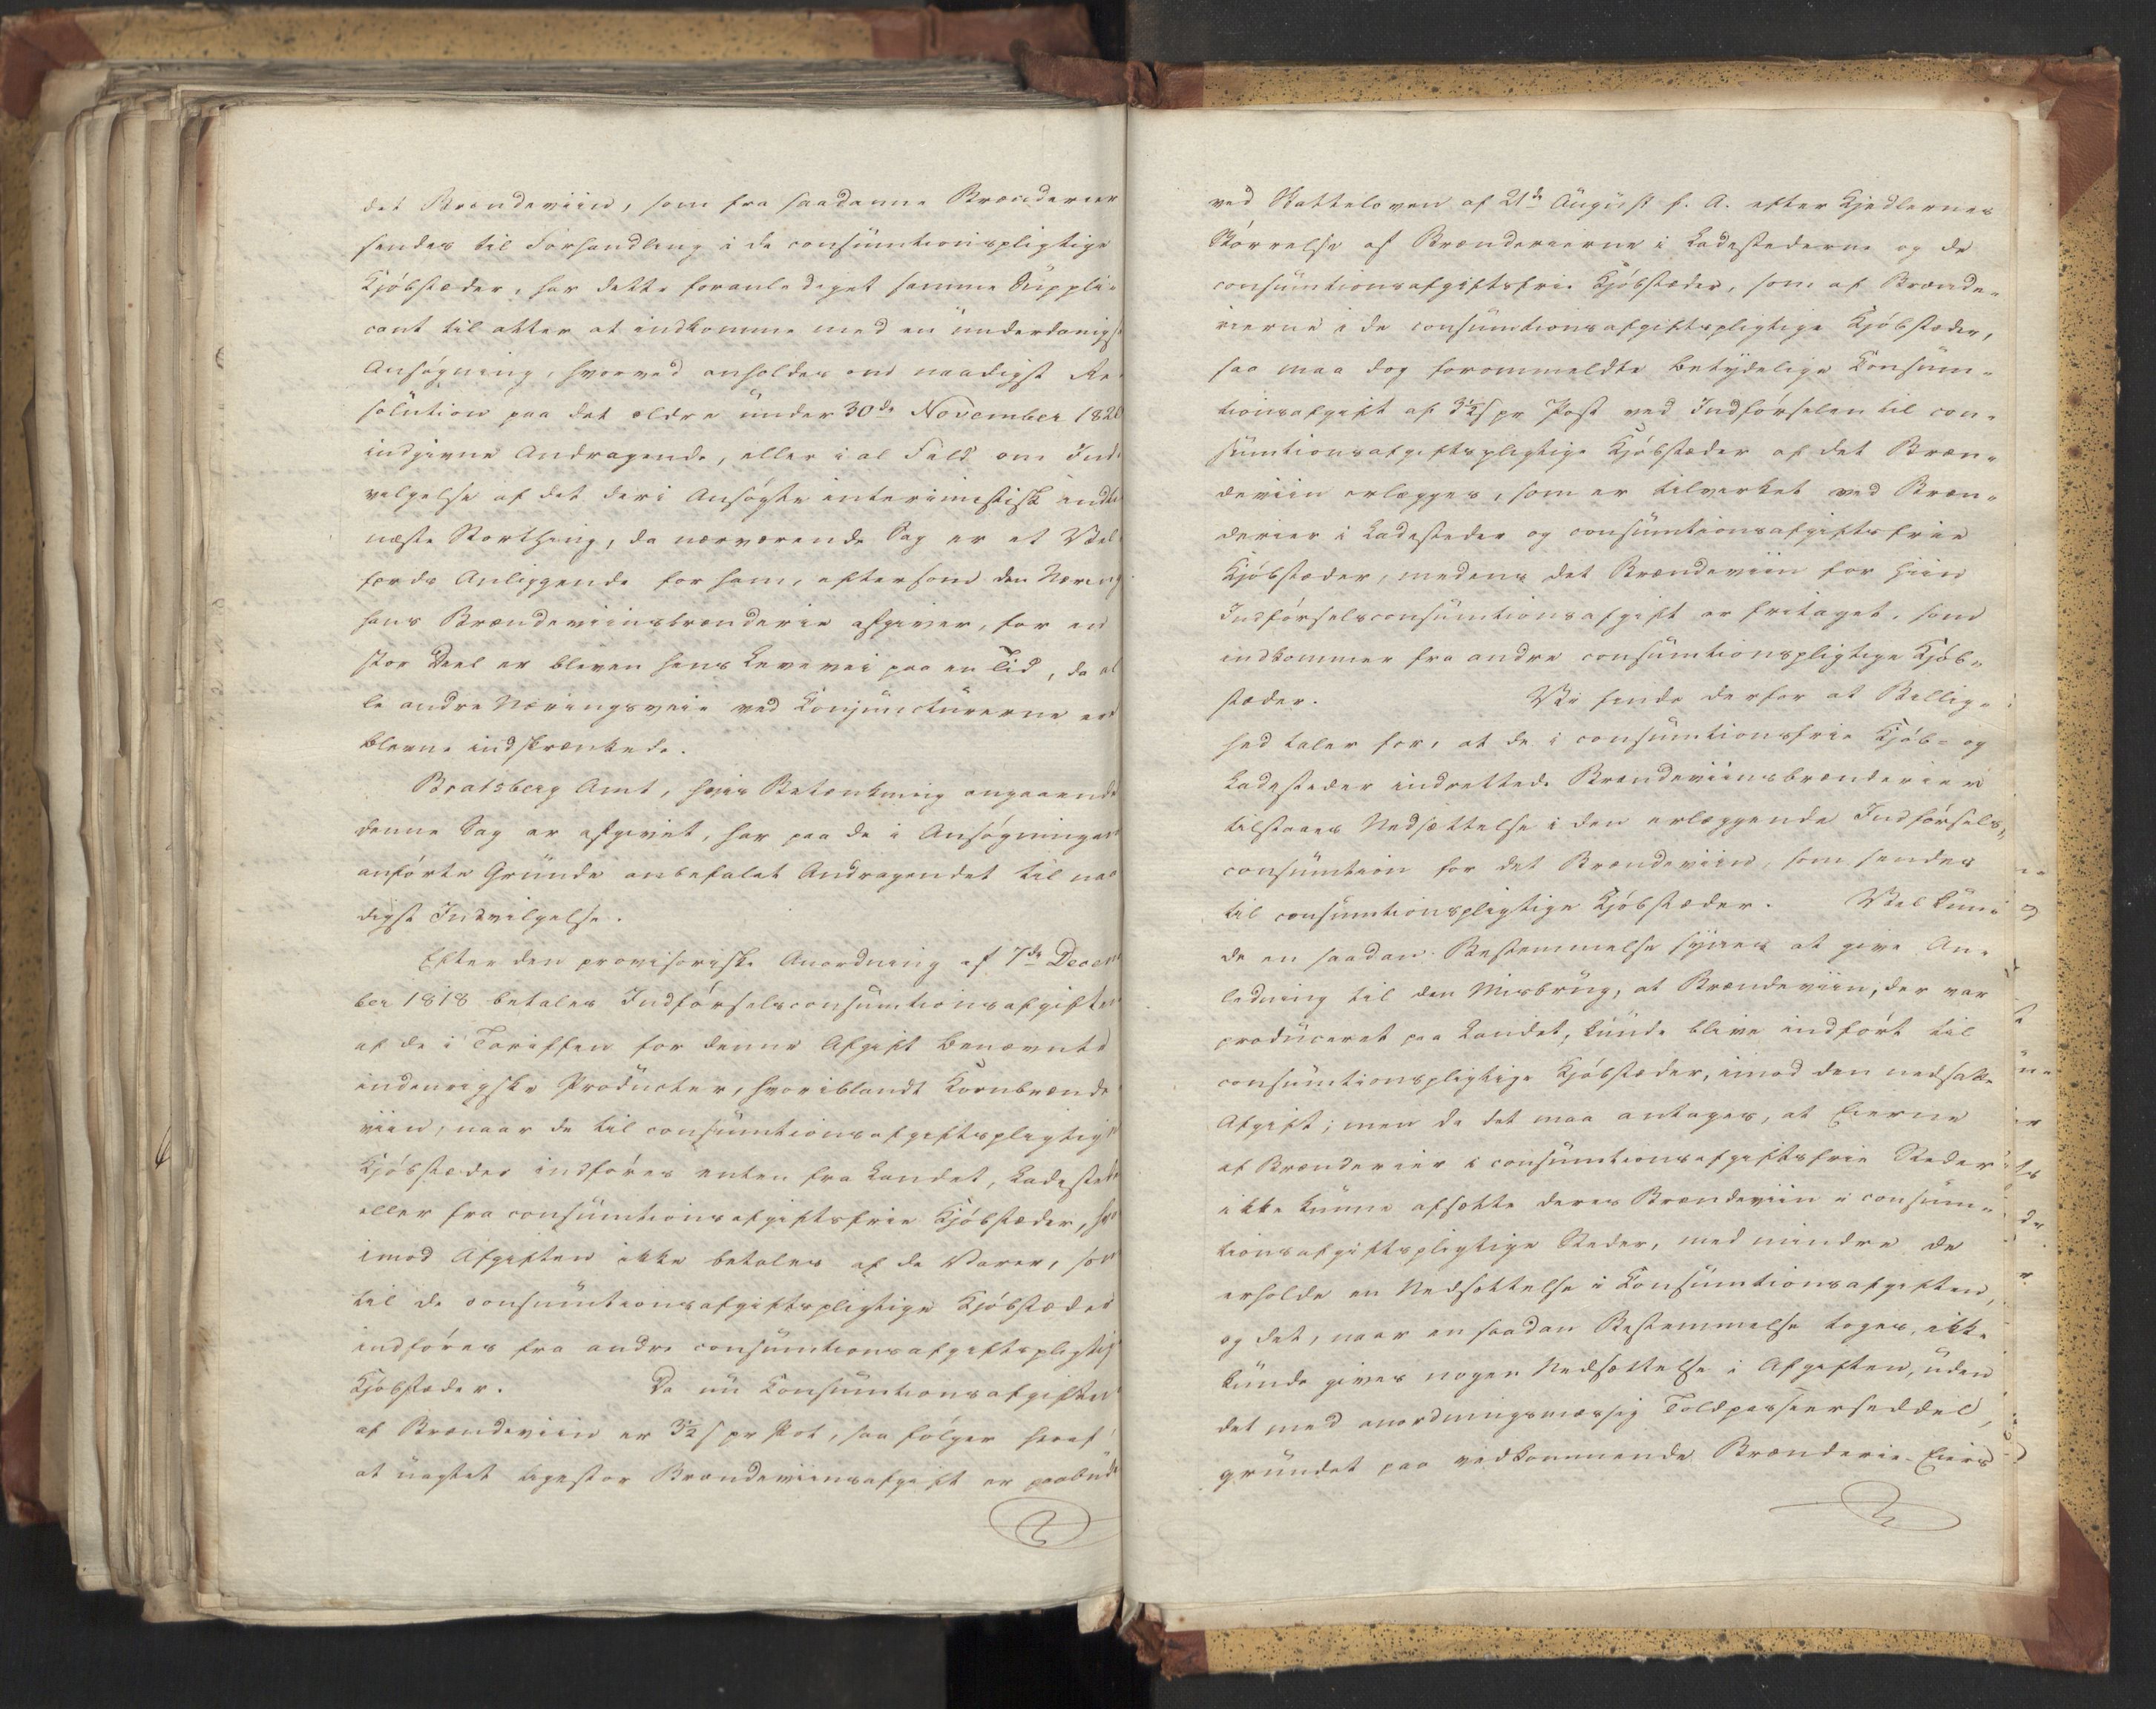 det Brændeviin, som fra saadanne Brænderier
sendes til Forhandling i de consumtionspligtige
Kjöbstæder, har dette foranlediget samme Suppli-
cant til atter at indkomme med en underdanigst
Ansögning, hvorved anholdes om naadigst Re-
solution paa det ældre under 30de November 1820
indgivne Andragende, eller i al Fald om Ind-
vilgelse af det deri Ansögte interimistisk indtil
næste Storthing, da nærværende Sag er et Vel-
færds Anliggende for ham, eftersom den Næring
hans Brændeviinsbrænderie afgiver, for en
stor Deel er bleven hans Levevei paa en Tid, da al-
le andre Næringsveie ved Conjuncturerne ere
blevne indskrænkede.
Bratsberg Amt, hvis Betænkning angaaende
denne Sag er afgivet, har paa de i Ansögningen
anförte Grunde anbefalet Andragendet til naa-
digst Indvilgelse.
Efter den provisoriske Anordning af 7de Decem-
ber 1818 betales Indförselsconsumtionsafgiften
af de i Tariffen for denne Afgift benævnte
indenrigske Producter, hvoriblandt Kornbrænde-
viin, naar de til consumtionsafgiftspligtige
Kjöbstæder indföres enten fra Landet, Ladesteder
eller fra consumtionsafgiftsfrie Kjöbstæder, hvor-
imod Afgiften ikke betales af de Varer, som
til de consumtionsafgiftspligtige Kjöbstæder
indföres fra andre consumtionsafgiftspligtige
Kjöbstæder. Da nu Consumtionsafgiften
af Brændeviin er 3½ s pr Pot, saa fölger heraf
at uagtet ligestor Brændeviinsafgift er paabudt
ved Skatteloven af 21de August f. A. efter Kjedlernes
Störrelse af Brænderierne i Ladestederne og de
consumtionsafgiftsfrie Kjöbstæder, som af Brænde-
rierne i de consumtionsafgiftspligtige Kjöbstæder,
saa maa dog forommeldte betydelige Consum-
tionsafgift af 3½ s pr Pot ved Indförselen til con-
sumtionsafgiftspligtige Kjöbstæder af det Bræn-
deviin erlægges, som er tilvirket ved Bræn-
derier i Ladesteder og consumtionsafgiftsfrie
Kjöbstæder, medens det Brændeviin for hiin
Indförselsconsumtionsafgift er fritaget, som
indkommer fra andre consumtionspligtige Kjöb-
stæder. Vi finde derfor at Billig-
hed taler for, at de i consumtionsfrie Kjöb- og
Ladesteder indrettede Brændeviinsbrænderier
tilstaaes Nedsættelse i den erlæggende Indförsels-
consumtion for det Brændeviin, som sendes
til consumtionspligtige Kjöbstæder. Vel kun-
de en saadan Bestemmelse synes at give An-
ledning til den Misbrug, at Brændeviin, der var
produceret paa Landet, kunde blive indfört til
consumtionspligtige Kjöbstæder, imod den nedsatte
Afgift; men da det maa antages, at Eierne
af Brænderier i consumtionsafgiftsfrie Steder
ikke kunne afsætte deres Brændeviin i consum-
tionsafgiftspligtige Steder, med mindre de
erholde en Nedsættelse i Consumtionsafgiften,
og det, naar en saadan Bestemmelse toges, ikke
kunde gives nogen Nedsættelse i Afgiften, uden
det med anordningsmæssig Toldpasseerseddel,
grundet paa vedkommende Brænderie-Eiers